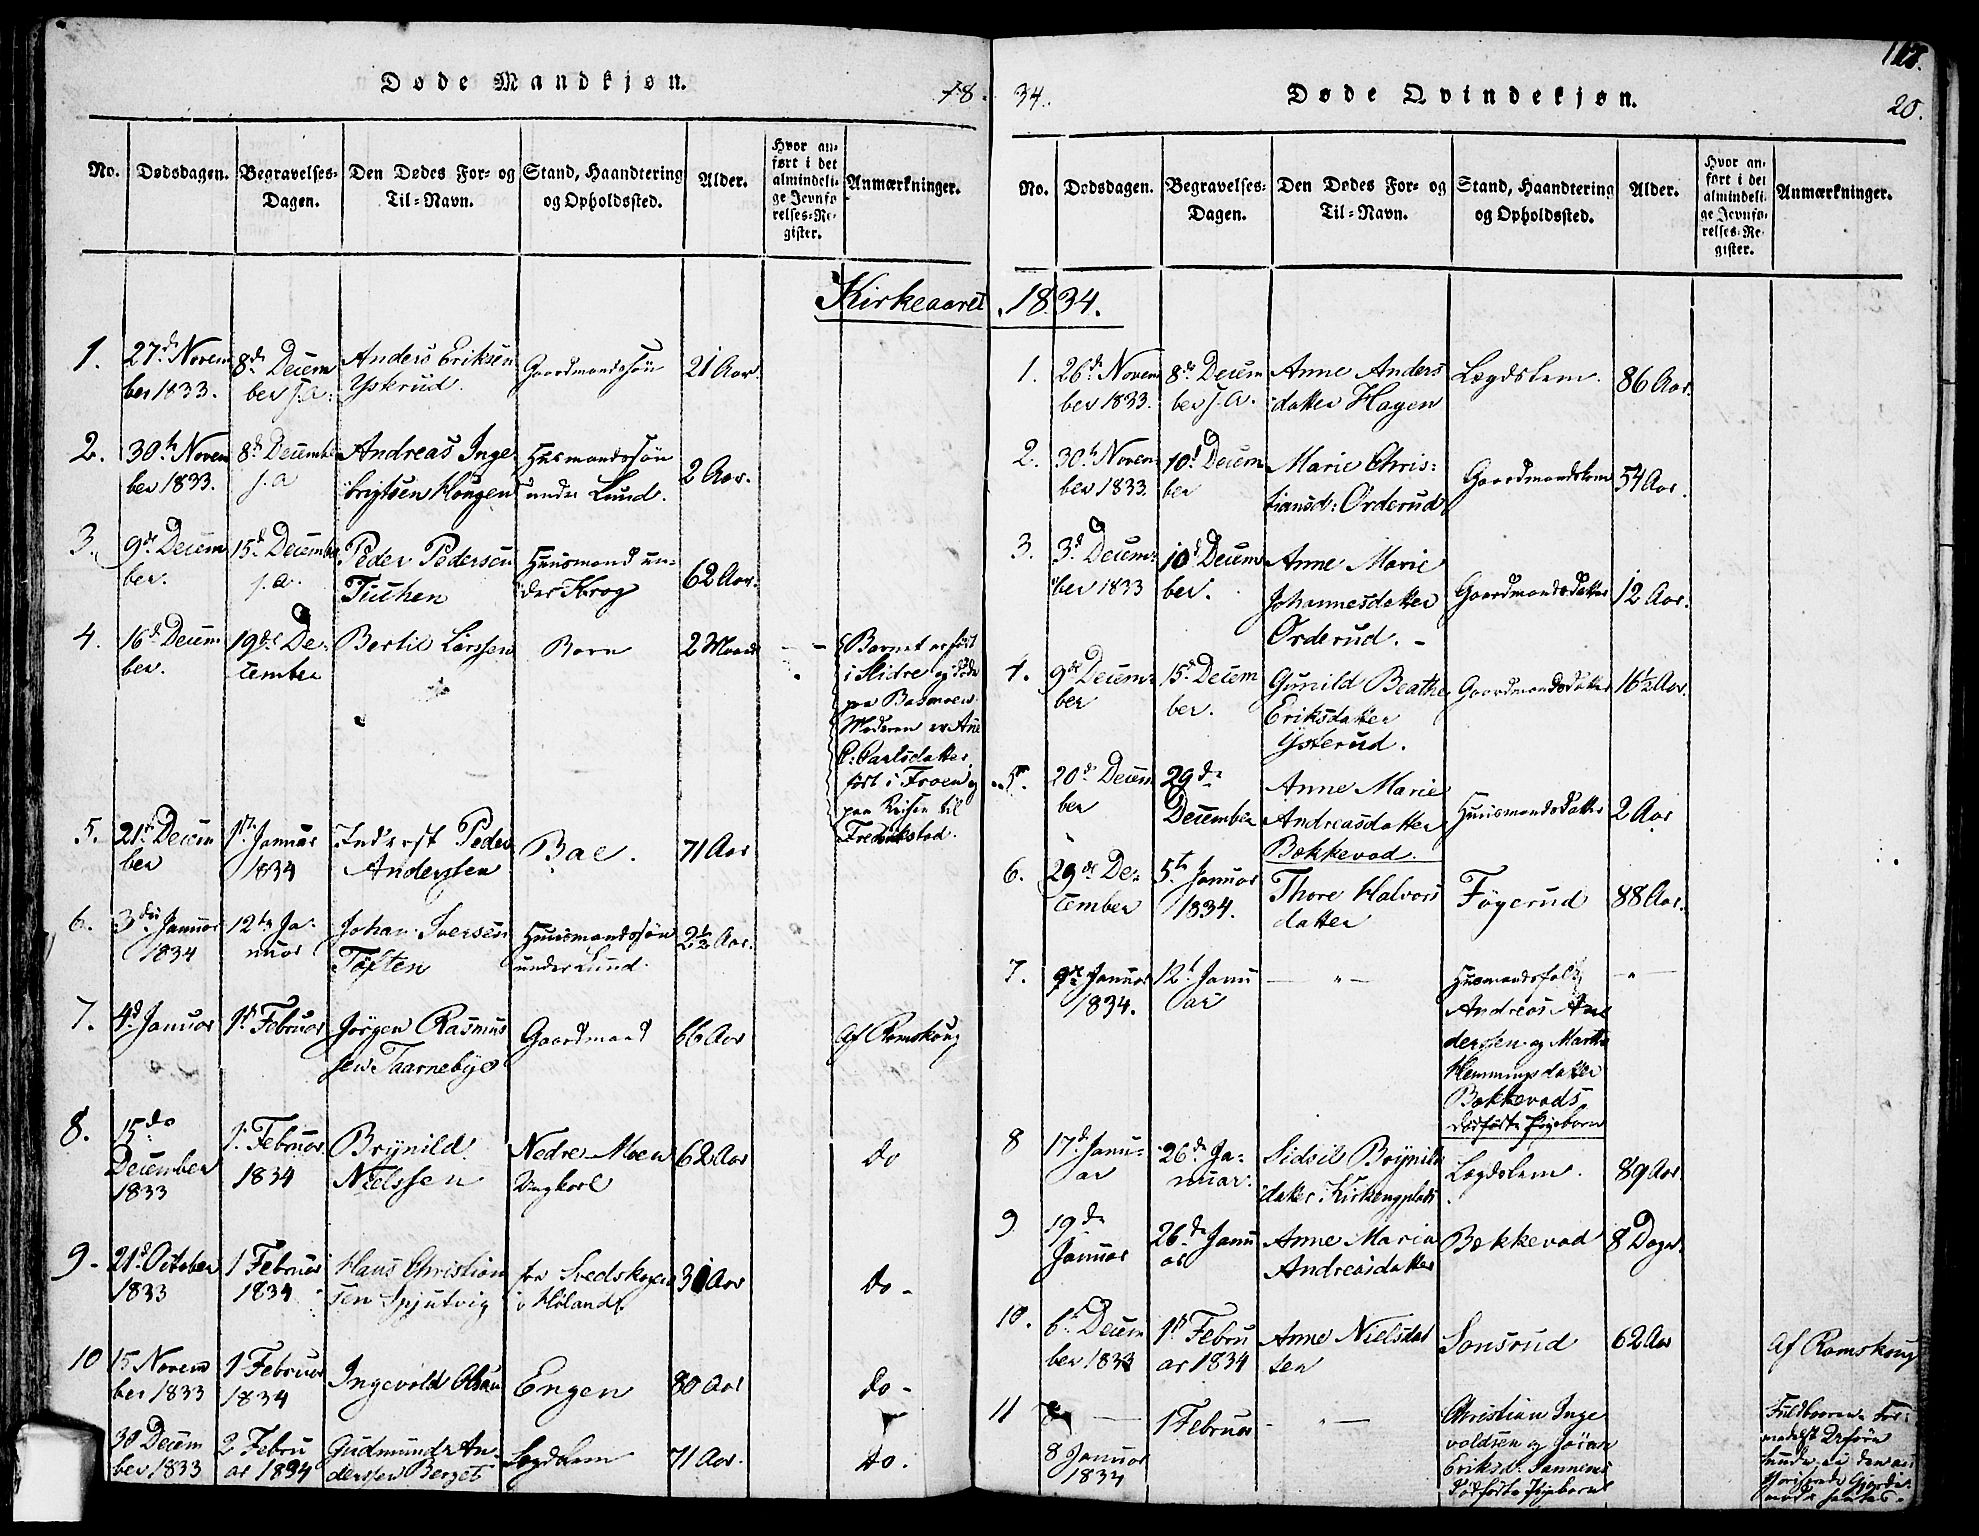 Døde Mandkjøn.
18
No. Dødsdagen. Begravelses-Dagen. Den Dødes For- og Til-Navn. Stand, Haandtering og Opholdssted. Alder. Hvor anført i det almindelige Jevnførelses-Register. Anmærkninger.
Kirkeaaret
1. 27de November 1833. 8de December s.A. Anders Eriksen Ysterud. Gaardmandssøn 21 Aar.
2. 30te November 1833. 8de December s.a Andreas Ingebrigtsen Haugen Husmandssøn under Lund. 2 Aar.
3. 9de December. 15de December s.a. Peder Pedersen Husmand under Krog 62 Aar.
4. 16de December. 19de December Bertil Larssen Barn 2 Maan
Barnet er født
i Slidre og døde
paa Basmoen.
Moderen er Ane
C: Carlsdatter,
født i Froen og
paa Reisen til
Fredrikstad.
5. 21de December 1ste Januar 1834 Inderst Peder Anderssen Bae. 71 Aar
6. 3die Januar 1834 12te Januar Johan Iversen Toften Huusmandssøn under Lund. 2½ Aar.
7. 4de Januar 1ste Februar Jørgen Rasmussen Taarnebye Gaardmand 66 Aar Af Romskoug
8. 15de December 1833 1. Februar 1834 Brynild Nielssen Nedre Moen Ungkarl 62 Aar do
9. 21de October 1833 1 Februar 1834 Hans Christiansen Spjutvig fra Svedskogen i Høland 31 Aar do.
10 15 November 1833 1 Februar 1834 Ingevold Olsen Engen 80 Aar do.
30 December 1833 2 Februar 1834 Gudmund Anderssen Berget Lægdslem 71 Aar. do.
34.
Døde Qvindekjøn.
20.
No. Dødsdagen. Begravelses-Dagen. Den Dødes For- og Til-Navn. Stand, Haandtering og Opholdssted. Alder. Hvor anført i det almindelige Jevnførelses-Register. Anmærkninger.
1834.
1. 26de November 1833. 8de December s.A. Anne Andersdatter Hagen Lægdslem. 86 Aar.
2. 30te November 1833. 10de December Marie Christiansd: Orderud Gaardmandskone 54 Aar.
3. 3de December 1833 10de December. Anne Marie Johannesdatter Orderud. Gaardmandsdatter 12 Aar.
4. 9de December 15de December. Gunild Beathe Eriksdatter Ysterud. Gaardmandsdatter 16½ Aar.
5. 20de December 29de December Anne Marie Andreasdatter Bækkevad. Huusmandsdatter 2 Aar
6. 29de December 5te Januar 1834. Thore Halvorsdatter Føgerud 88 Aar.
7. 9de Januar 1834. 12te Januar — " — Husmandsfolk Andreas Anderssen og Marthe Hemmingsdatter Bækkevads dødfødte Pigebarn — " —
8 17de Januar 26de Januar. Sidsil Brynildsdatter Kirkengplads Lægdslem. 89 Aar
9 19de Januar 26de Januar Anne Maria Andreasdatter Bækkevad 8 Dage.
10. 6te December 1833 1ste Februar 1834 Anne Nielsdatter Sonsrud 62 Aar Af Romskoug
11 8 Januar 1834 1 Februar — " — Christian Ingevoldsen og Jøran Eriksd. dødfødte Pigebarn